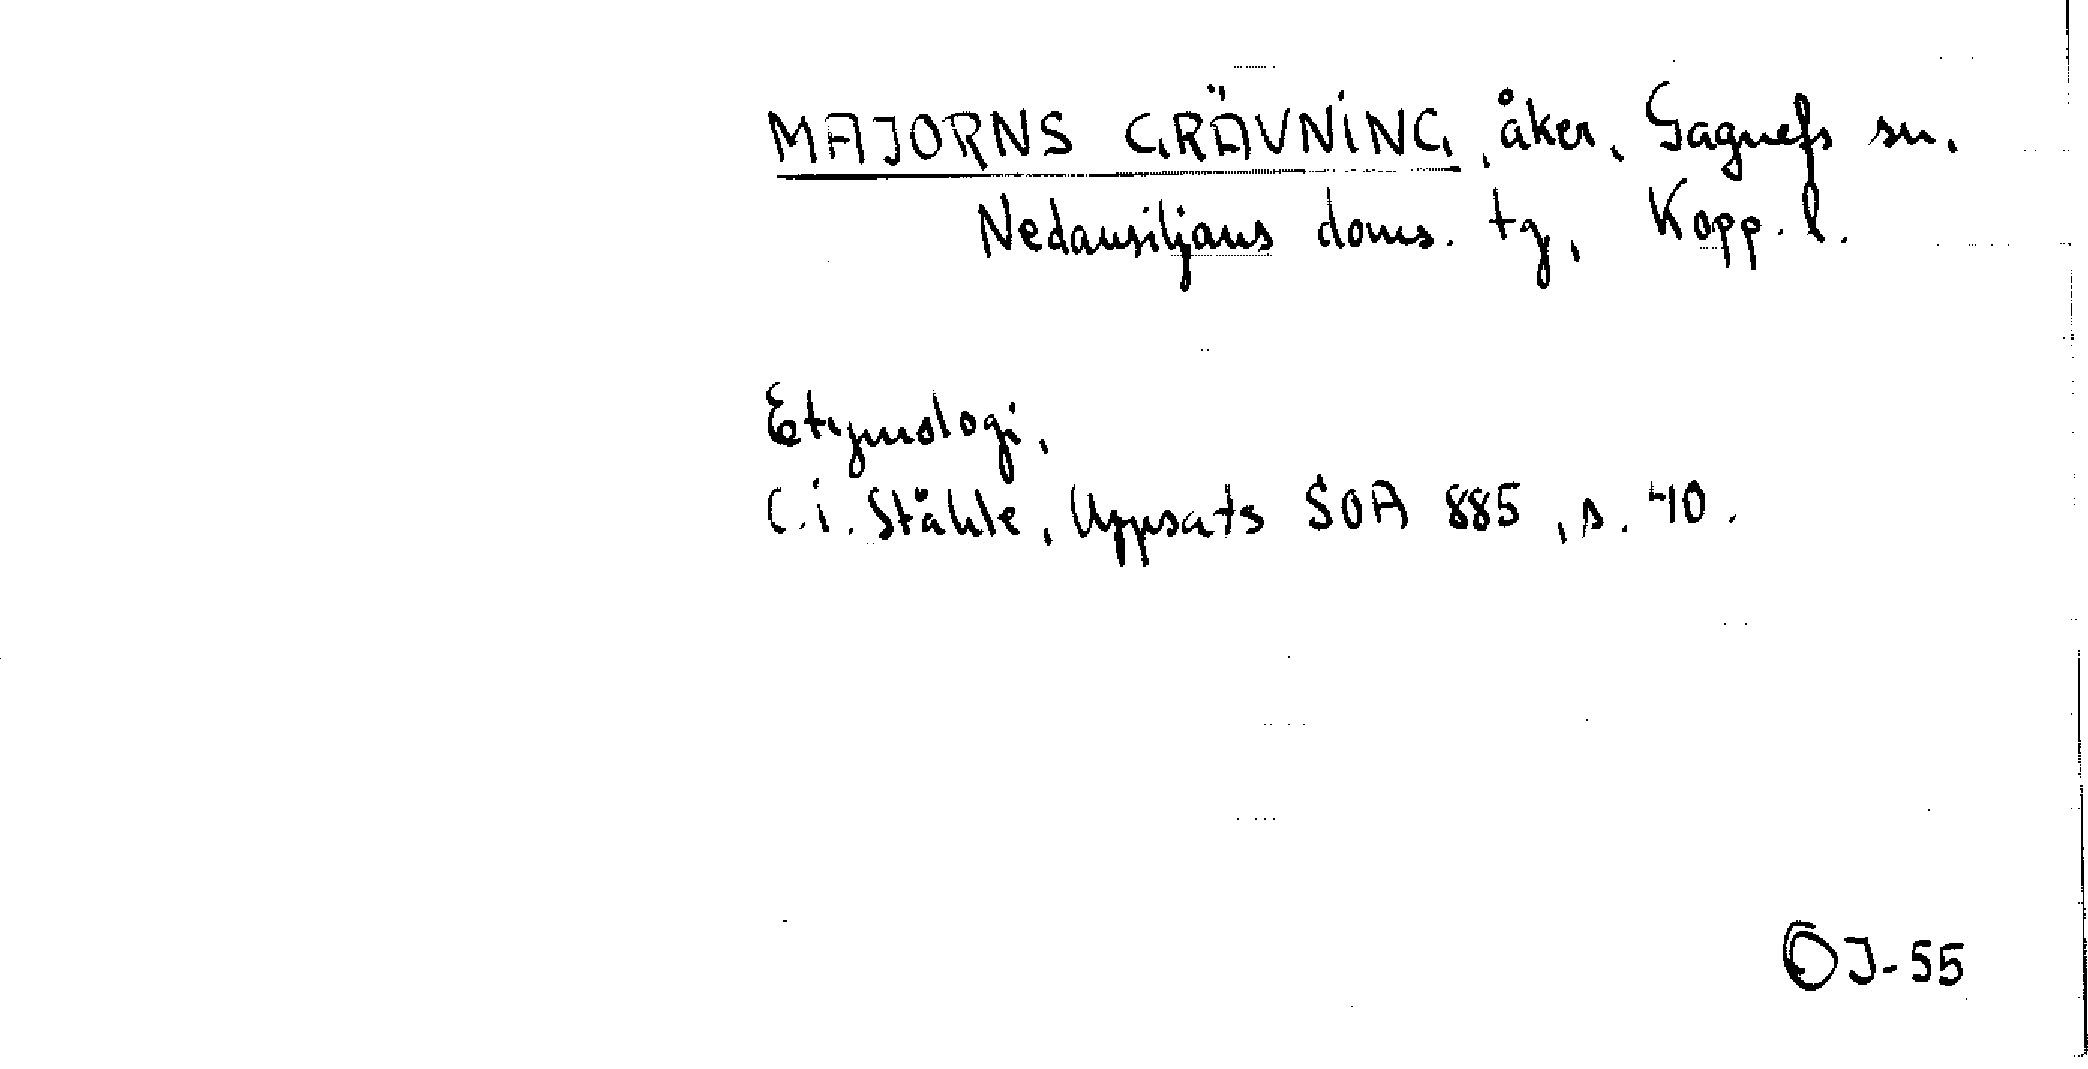 MAJORNS GRÄVNING, åker, Gagnefs sn.
Nedansiljans doms. tg, Kopp. l.
Etymologi,
C.i. Ståhle, Uppsats SOA 885, s. 40.
OJ-55